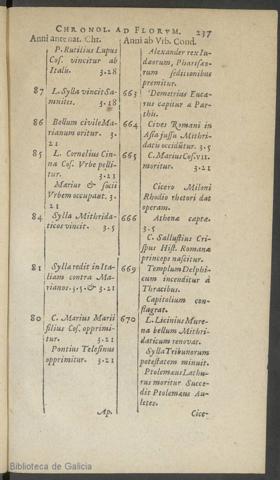 CHRONOL. AD FLORVM. 237
Anni ante nat. Chr.
P. Rutilius Lupus
Cos. vincitur ab
Italis. 3.28
87 L. Sylla vincit Sa-
mnites. 3.18
86 Bellum civile Ma-
rianum oritur. 3.
21
85 L. Cornelius Cin-
na Cos. Vrbe pelli-
tur. 3.21
Marius & socii
Vrbem occupant. 3.
21
84 Sylla Mithrida-
ticos vincit. 3.5
81 Sylla redit in Ita-
liam contra Ma-
rianos. 3.5. & 3.21
80 C. Marius Marii
filius Cos. opprimi-
tur. 3.21
Pontius Telesinus
opprimitur. 3.21
Ap.
Anni ab Vrb. Cond.
Alexander rex Iu-
daeorum, Pharisaeo-
rum seditionibus
premitur.
663 Demetrius Euca-
rus capitur a Par-
this.
664 Cives Romani in
Asia jussu Mithri-
datis occidutur. 3.5
665 C. Marius Cos. VII.
moritur. 3.21
Cicero Miloni
Rhodio rhetori dat
operam.
666 Athenae captae.
3.5
C. Sallustius Cri-
spus Hist. Romanae
princeps nascitur.
669 Templum Delphi-
cum incenditur à
Thracibus.
Capitolium con-
flagrat.
670 L. Licinius Mure-
na bellum Mithri-
daticum renovat.
Sylla Tribunorum
potestatem minuit.
Ptolemaeus Lathu-
rus moritur Succe-
dit Ptolemaeus Au-
letes.
Cice-
Biblioteca de Galicia